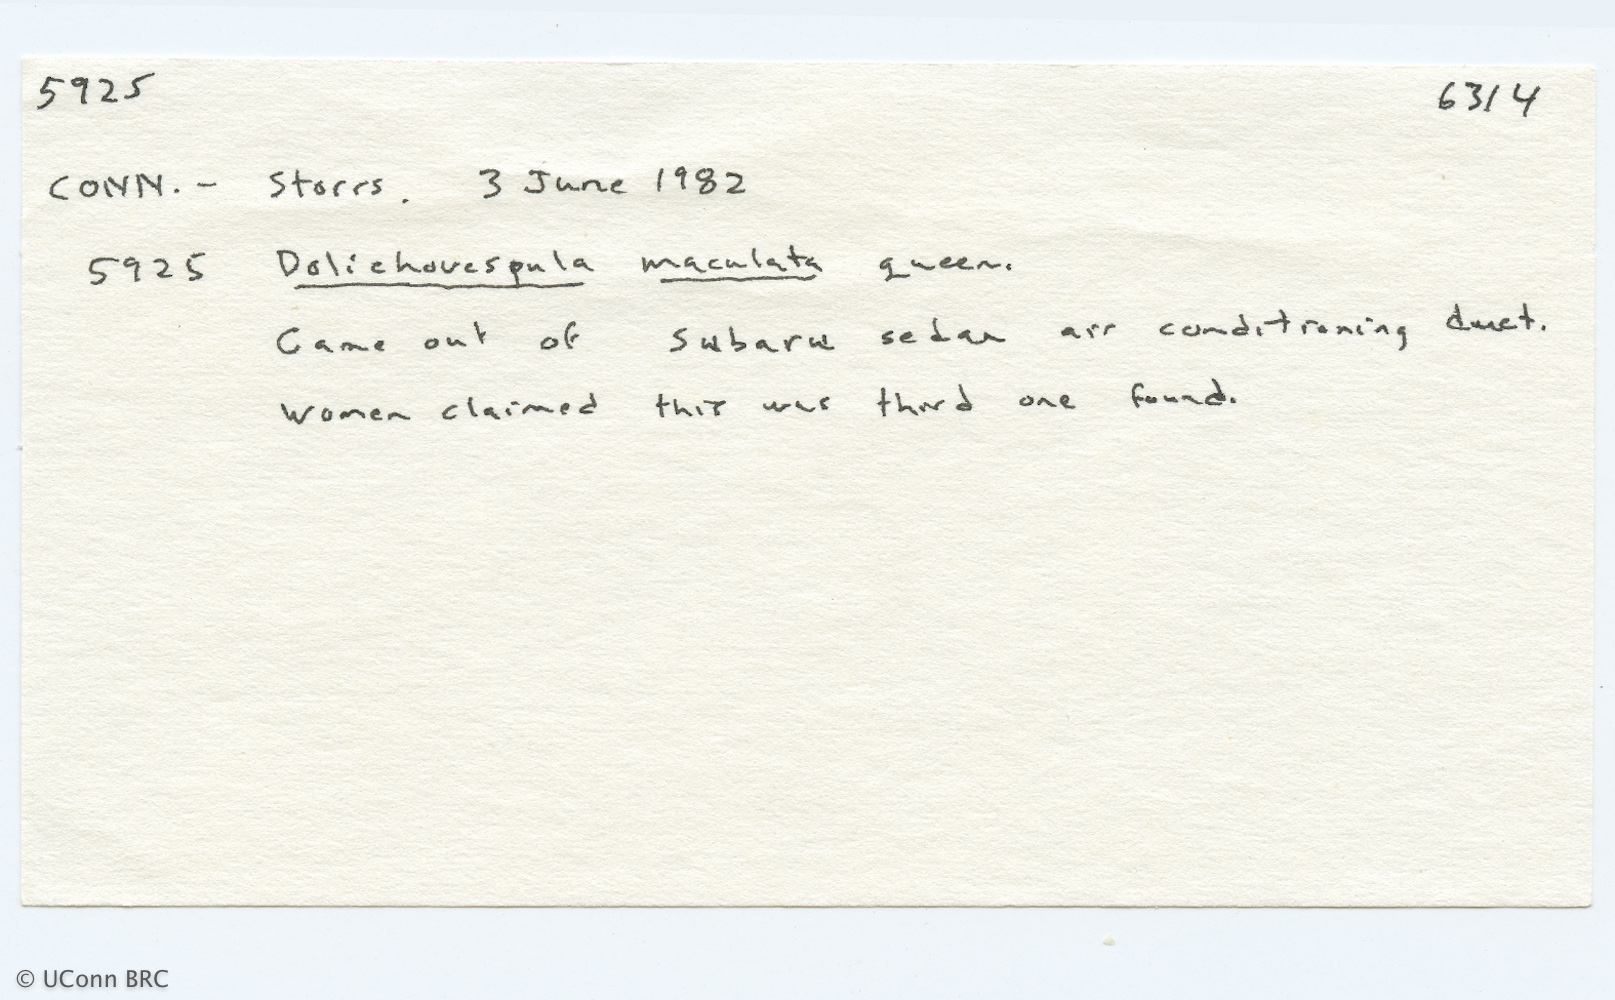 5925 6314
CONN. - Storrs. 3 June 1982
5925 Dolichovespula maculata queen.
Came out of Subaru sedan air conditioning duct.
Women claimed this was third one found.
© UConn BRC